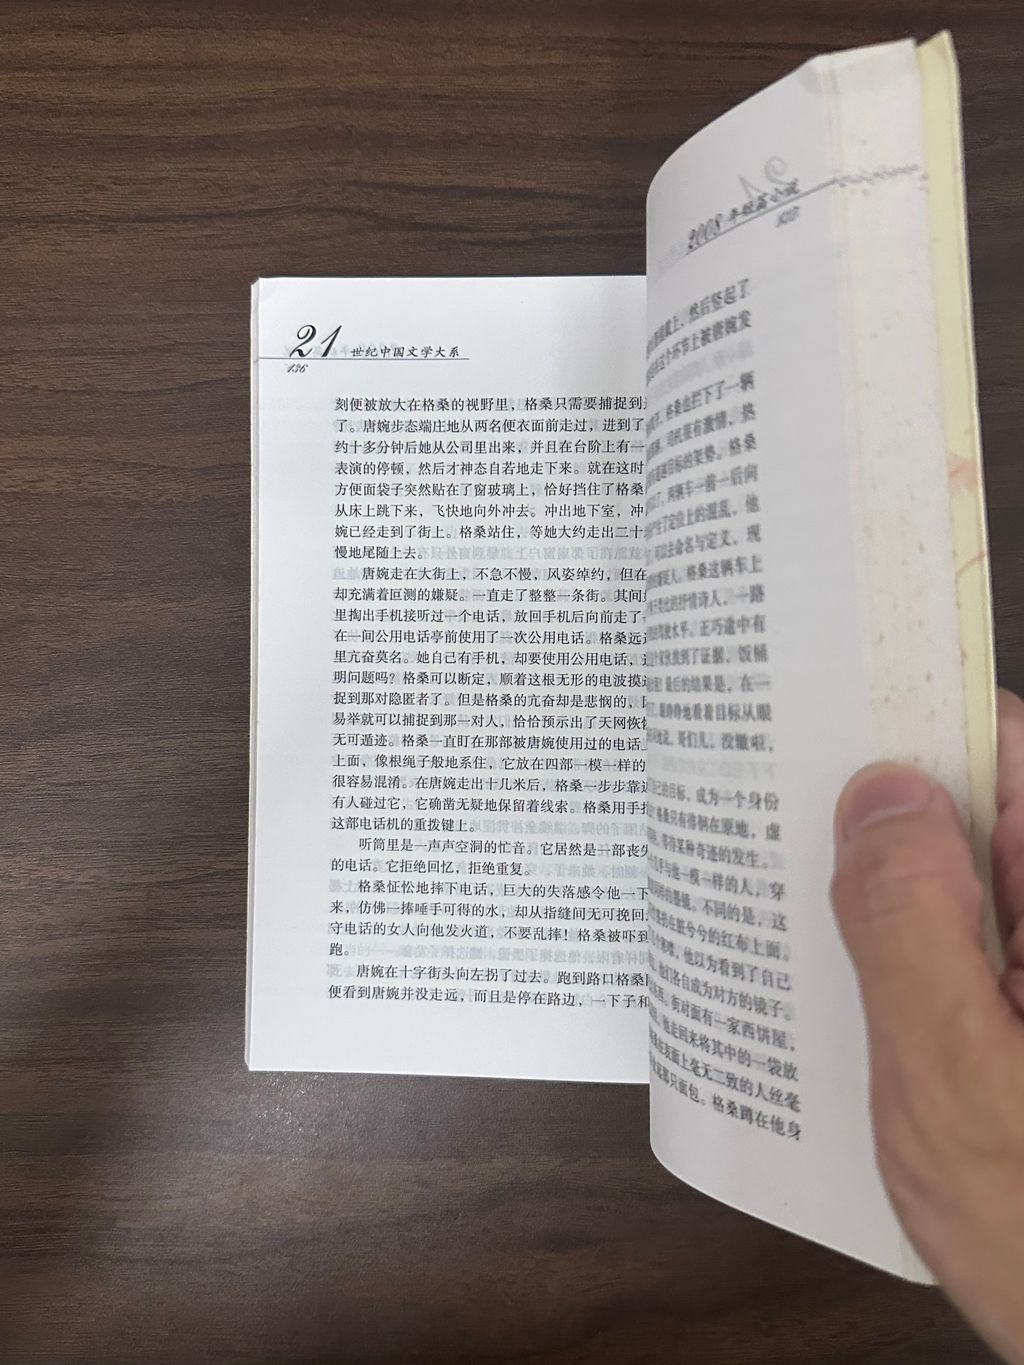 21 世纪中国文学大系
136
刻便被放大在格桑的视野里，格桑只需要捕捉到
了。唐婉步态端庄地从两名便衣面前走过，进到了
约十多分钟后她从公司里出来，并且在台阶上有一
表演的停顿，然后才神态自若地走下来。就在这时
方便面袋子突然贴在了窗玻璃上，恰好挡住了格桑
从床上跳下来，飞快地向外冲去。冲出地下室，冲
婉已经走到了街上。格桑站住，等她大约走出二十
慢地尾随上去。
唐婉走在大街上，不急不慢，风姿绰约，但在
却充满着叵测的嫌疑。一直走了整整一条街。其间
里掏出手机接听过一个电话，放回手机后向前走了
在一间公用电话亭前使用了一次公用电话。格桑远
里亢奋莫名。她自己有手机，却要使用公用电话，
明问题吗？格桑可以断定，顺着这根无形的电波摸
捉到那对隐匿者了。但是格桑的亢奋却是悲悯的，
易举就可以捕捉到那一对人，恰恰预示出了天网恢
无可遁迹。格桑一直盯在那部被唐婉使用过的电话
上面，像根绳子般地系住，它放在四部一模一样的
很容易混淆。在唐婉走出十几米后，格桑一步步靠
有人碰过它，它确凿无疑地保留着线索。格桑用手
这部电话机的重拨键上。
听筒里是一声声空洞的忙音。它居然是一部丧
的电话。它拒绝回忆，拒绝重复。
格桑怔忪地摔下电话，巨大的失落感令他一下
来，仿佛一捧唾手可得的水，却从指缝间无可挽回
守电话的女人向他发火道，不要乱摔！格桑被吓到
跑。
唐婉在十字街头向左拐了过去。跑到路口格桑
便看到唐婉并没走远，而且是停在路边，一下子和
2008 年短篇小说
戴上，然后竖起了
在这个环节上被唐婉发
格桑也拦下了一辆
司机很有激情，热
目标的架势。格桑
了，两辆车一前一后向
产生了定位上的混乱，他
可以去命名与定义，现
格桑这辆车上
抒情诗人。一路
水平。正巧途中有
找到了证据，饭桶
最后的结果是，在一
地看着目标从眼
哥们儿，没辙啦，
己的目标，成为一个身份
格桑只有徘徊在原地，虚
等待某种奇迹的发生。
乎与他一模一样的人，穿
的墨镜。不同的是，这
扔在脏兮兮的红布上面。
他以为看到了自己
他们各自成为对方的镜子。
街对面有一家西饼屋，
他走回来将其中的一袋放
在表面上毫无二致的人丝毫
那只面包。格桑蹲在他身